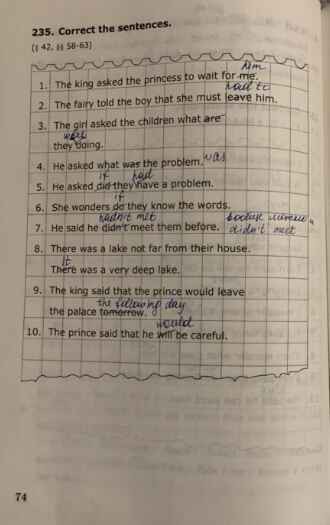 235. Correct the sentences.
(§ 42, §§ 58-63)
him
1. The king asked the princess to wait for me.
had to
2. The fairy told the boy that she must leave him.
3. The girl asked the children what are
were
they doing.
4. He asked what was the problem. was
if had
5. He asked did they have a problem.
if
6. She wonders do they know the words.
hadn't met
7. He said he didn't meet them before. didn't meet
8. There was a lake not far from their house.
It
There was a very deep lake.
9. The king said that the prince would leave
the following day
the palace tomorrow.
would
10. The prince said that he will be careful.
74